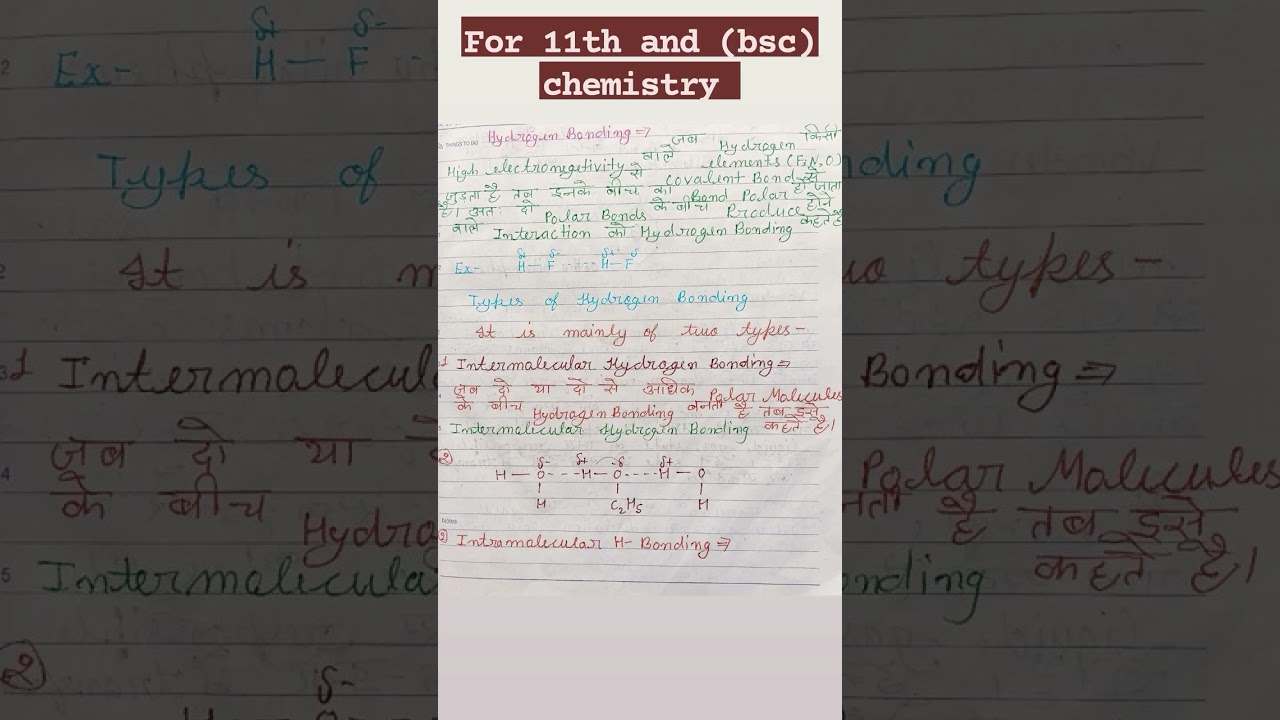 For 11th and (bsc)
chemistry
THINGS TO DO
Hydrogen Bonding ⇒ जब Hydrogen किसी
High electronegitivity वाले elements (F, N, O) से
जुड़ता है तब इनके बीच का Covalent Bond
Bond Polar हो जाता
है। अतः दो Polar Bonds के बीच Produce होने
वाले Interaction को Hydrogen Bonding कहते है
Ex- δ+ δ- δ+ δ-
H — F --- H — F
Types of Hydrogen Bonding
It is mainly of two types -
1 Intermalecular Hydrogen Bonding ⇒
जब दो या दो से अधिक Polar Malecules
के बीच Hydrogen Bonding बनती है तब इसे
Intermalecular Hydrogen Bonding कहते है।
δ- δ+ -δ δ+
H — O --- H — O ---- H — O
H C₂H₅ H
Notes
2) Intramalecular H- Bonding ⇒